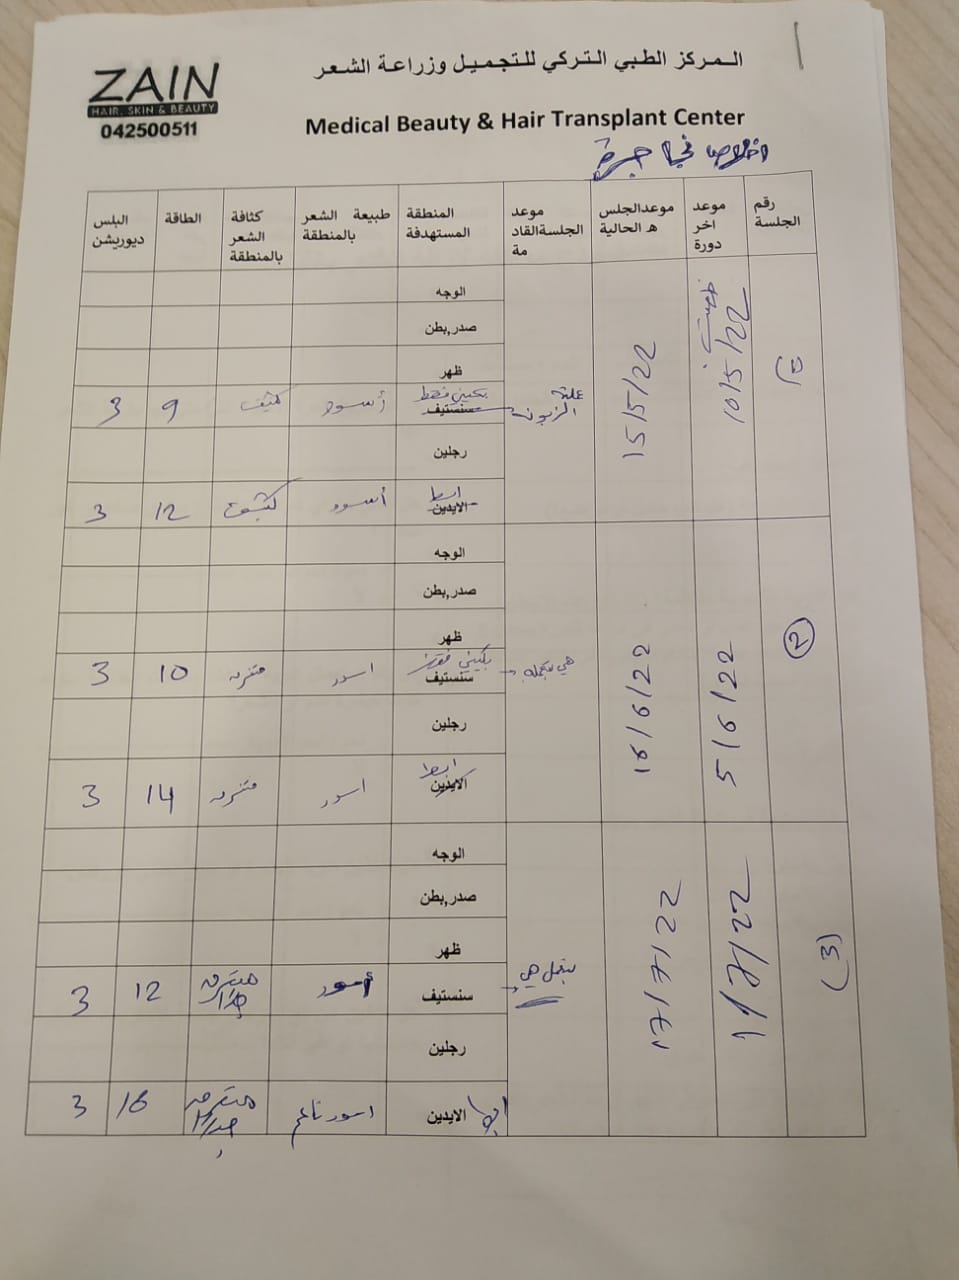 ZAIN
HAIR, SKIN & BEAUTY
042500511
الـمركز الطبي التركي للتجميل وزراعة الشعر
Medical Beauty & Hair Transplant Center
رقم الجلسة
موعد اخر دورة
موعدالجلس ه الحالية
موعد الجلسةالقاد مة
المنطقة المستهدفة
طبيعة الشعر بالمنطقة
كثافة الشعر بالمنطقة
الطاقة
البلس ديوريشن
10/5/22
15/5/22
الوجه
صدر,بطن
ظهر
بكيني فقط
سنستيف أسود كثيف 9 3
رجلين
ابط
الايدين أسود 12 3
2
5/6/22
16/6/22
الوجه
صدر,بطن
ظهر
بكيني
سنستيف اسود 10 3
رجلين
ابط
الايدين اسود 14 3
(3)
11/7/22
17/7/22
الوجه
صدر,بطن
ظهر
سنستيف أسود جدا 12 3
رجلين
الايدين اسود ناعم جدا 16 3